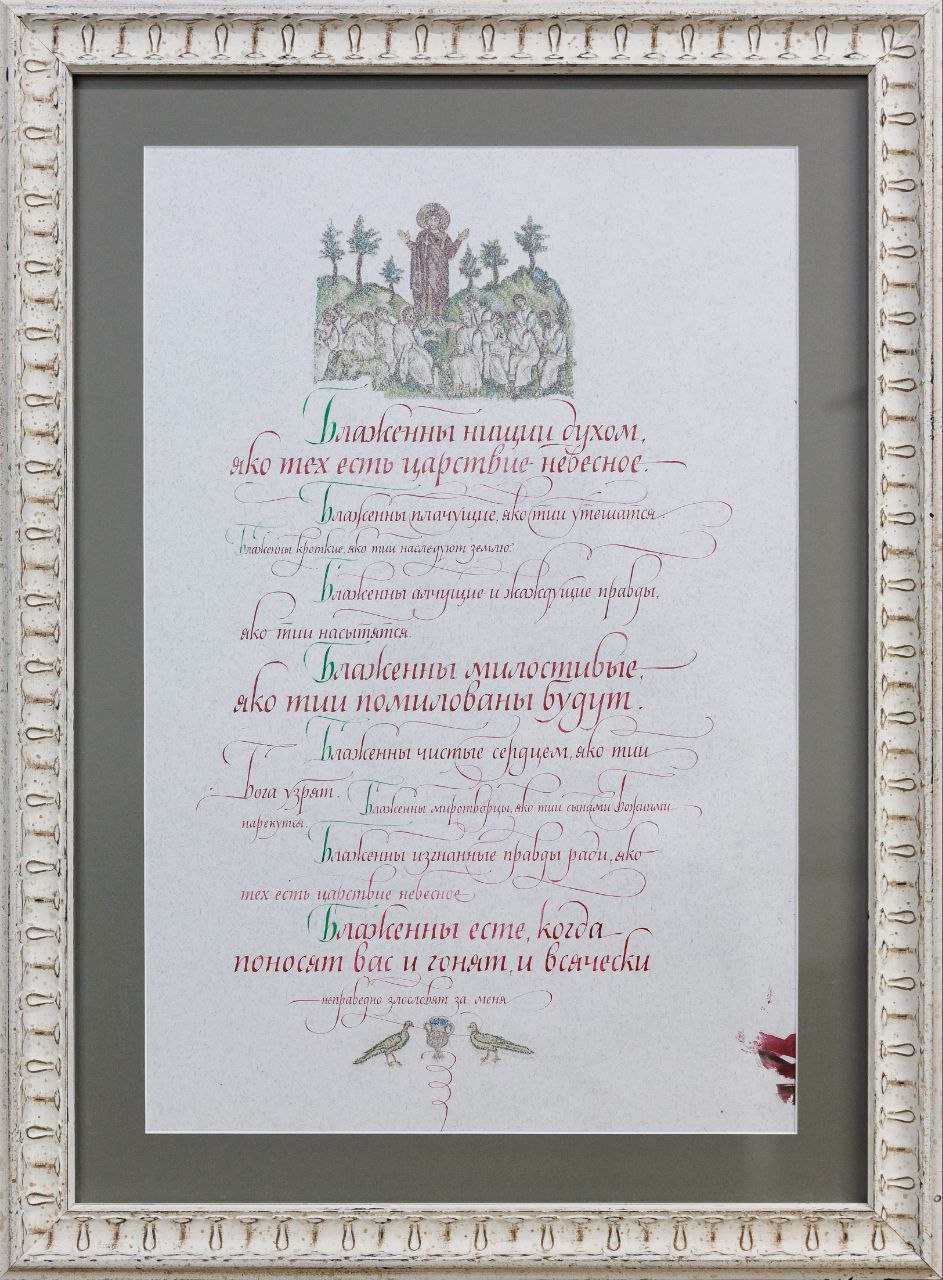 Блаженны нищии духом,
яко тех есть царствие небесное.
Блаженны плачущие, яко тии утешатся.
Блаженны кроткие, яко тии наследуют землю.
Блаженны алчущие и жаждущие правды,
яко тии насытятся.
Блаженны милостивые,
яко тии помилованы будут.
Блаженны чистые сердцем, яко тии
Бога узрят. Блаженны миротворцы, яко тии сынами Божиими
нарекутся.
Блаженны изгнанные правды ради, яко
тех есть царствие небесное
Блаженны есте, когда
поносят вас и гонят, и всячески
неправедно злословят за меня